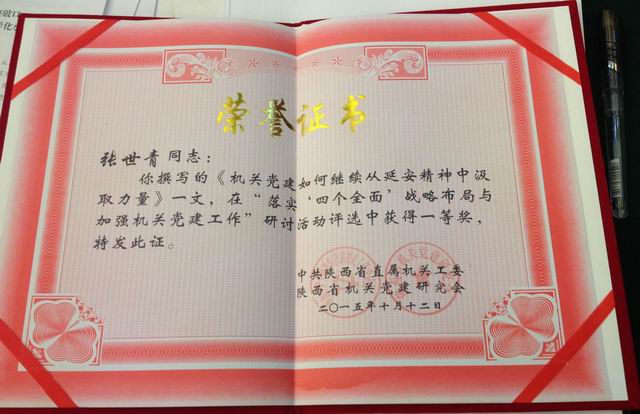 荣誉证书
张世青同志：
你撰写的《机关党建如何继续从延安精神中汲
取力量》一文，在“落实‘四个全面’战略布局与
加强机关党建工作”研讨活动评选中获得一等奖，
特发此证。
中共陕西省直属机关工委
陕西省机关党建研究会
二〇一五年十月十二日